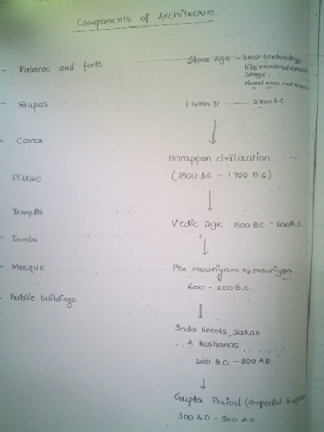 Components of Architecture
- Palaces and forts
- Stupas
- Caves
- Pillars
- Temples
- Tombs
- Mosque
- Public buildings
Stone Age -
2500 B.C
Harappan civilization
(2500 B.C - 1750 B.C)
Vedic age 1500 B.C - 600 B.C
Pre Mauriyan to mauriyan
600 - 200 B.C
Indo Greeks, Sakas
& Kushanas
200 B.C - 300 A.D
Gupta Period (Imperial
300 A.D - 500 A.D